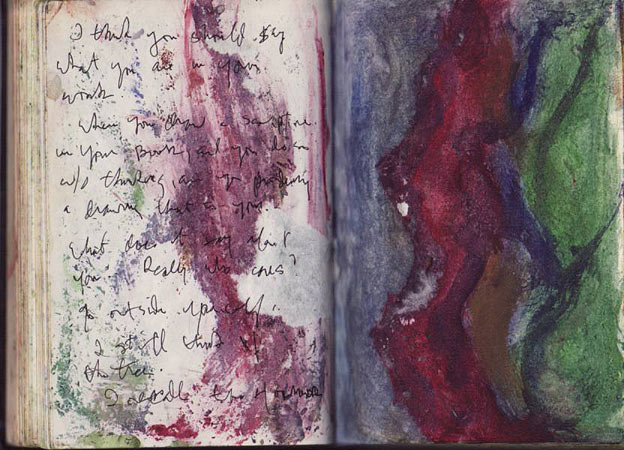 I think you should say
what you are in your
work
When you draw a
in your and you draw
w/o thinking, are you
a drawing that is you.
What does it say about
you. Really who cares?
go outside yourself.
I still think
the tree.
I